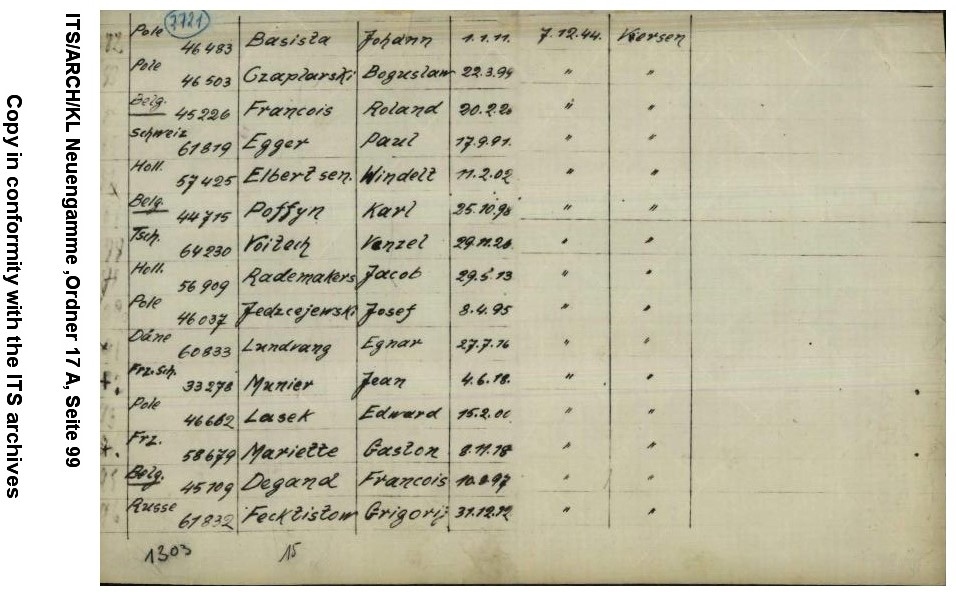 ITS/ARCH/KL Neuengamme ,Ordner 17 A, Seite 99
Copy in conformity with the ITS archives
2721
Pole 46483 Basista Johann 1.1.11. 7.12.44. Viersen
Pole 46503 Czaplarski Boguslaw 22.3.99 " "
Belg. 45226 Francois Roland 20.2.20 " "
Schweiz 61819 Egger Paul 17.9.91. " "
Holl. 57425 Elbertsen. Windelt 11.2.02 " "
Belg. 44715 Poffyn Karl 25.10.98 " "
Tsch. 64230 Voitech Venzel " "
Holl. 56909 Rademakers Jacob 29.5.13 " "
Pole 46037 Jedzcejewski Josef 8.4.95 " "
Däne 60833 Lundvang Egnar 27.7.16 " "
Frz.Sch. 33278 Munier Jean 4.6.18. " "
Pole 46682 Lasek Edward " "
Frz. 58679 Mariette Gaston 8.11.18 " "
Belg. 45109 Degand Francois " "
Russe 61832 Fecktistow Grigorij 31.12.12 " "
1303 15